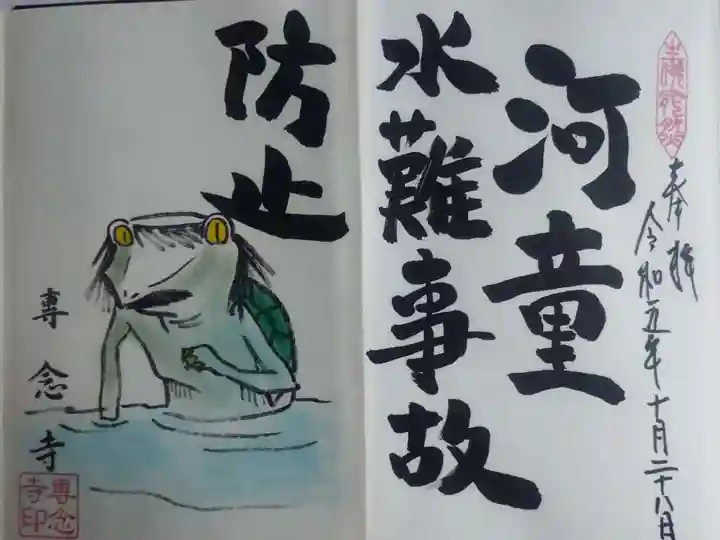 奉拝
令和元年十月二十八日
河童
水難事故
防止
専念寺
専念
寺印